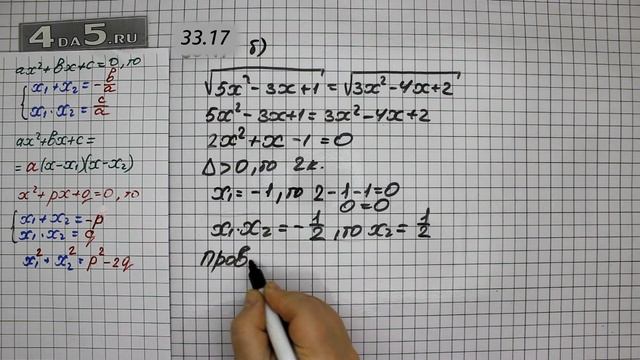 4DA5.RU
ax²+bx+c=0, то
x₁+x₂=-b/a
x₁·x₂=c/a
ax²+bx+c=
=a(x-x₁)(x-x₂)
x²+px+q=0, то
x₁+x₂=-p
x₁·x₂=q
x₁²+x₂²=p²-2q
33.17
б)
√(5x²-3x+1)=√(3x²-4x+2)
5x²-3x+1=3x²-4x+2
2x²+x-1=0
Δ>0, то 2к.
x₁=-1, то 2-1-1=0
0=0
x₁·x₂=-1/2, то x₂=1/2
Пров